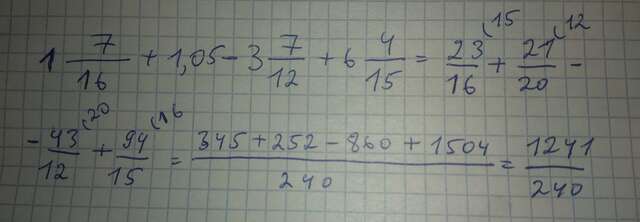 1 7/16 + 1,05 - 3 7/12 + 6 4/15 = 23/16 (15 + 21/20 (12 -
- 43/12 (20 + 94/15 (16 = 345 + 252 - 860 + 1504/240 = 1241/240